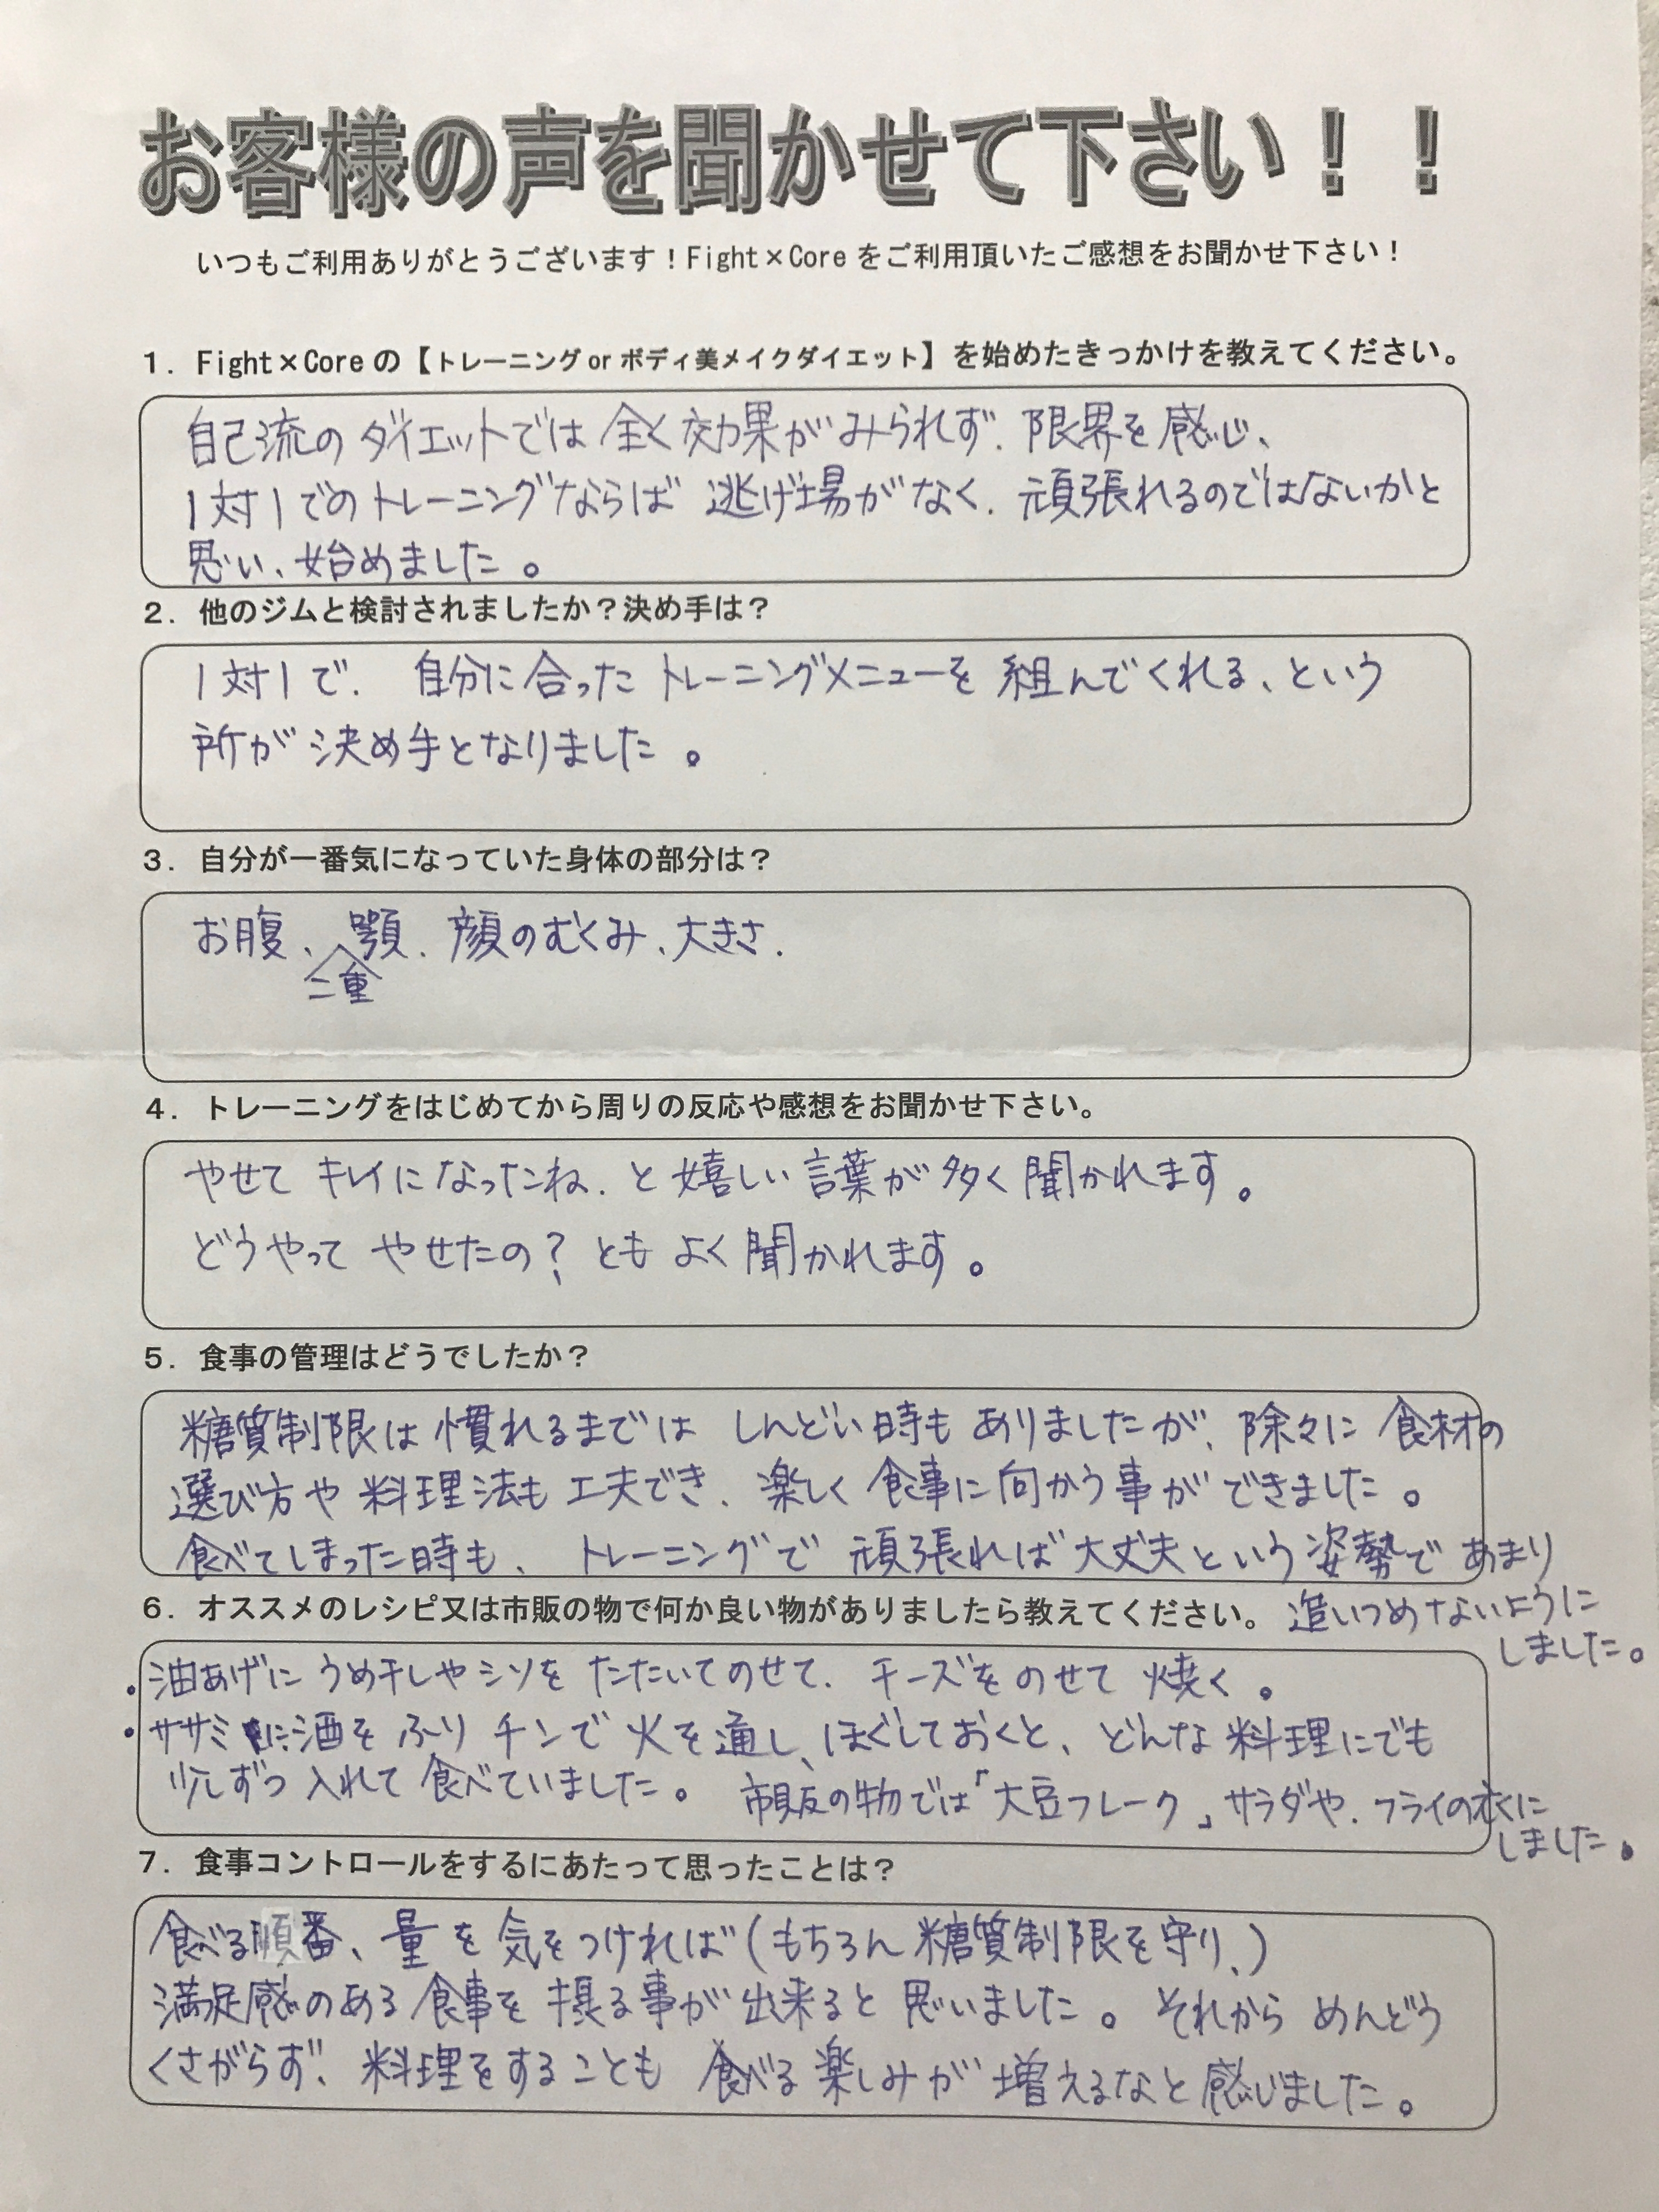 お客様の声を聞かせて下さい！！
いつもご利用ありがとうございます！Fight×Coreをご利用頂いたご感想をお聞かせ下さい！
1．Fight×Coreの【トレーニングorボディ美メイクダイエット】を始めたきっかけを教えてください。
自己流のダイエットでは全く効果がみられず、限界を感じ、
1対1でのトレーニングならば逃げ場がなく、頑張れるのではないかと
思い、始めました。
2．他のジムと検討されましたか？決め手は？
1対1で、自分に合ったトレーニングメニューを組んでくれる、という
所が決め手となりました。
3．自分が一番気になっていた身体の部分は？
お腹、二重顎、顔のむくみ、大きさ.
4．トレーニングをはじめてから周りの反応や感想をお聞かせ下さい。
やせてキレイになったね、と嬉しい言葉が多く聞かれます。
どうやってやせたの？ともよく聞かれます。
5．食事の管理はどうでしたか？
糖質制限は慣れるまではしんどい時もありましたが、除々に食材の
選び方や料理法も工夫でき、楽しく食事に向かう事ができました。
食べてしまった時も、トレーニングで頑張れば大丈夫という姿勢であまり
追いつめないように
しました。
6．オススメのレシピ又は市販の物で何か良い物がありましたら教えてください。
・油あげにうめ干しやシソをたたいてのせて、チーズをのせて焼く。
・ササミに酒をふりチンで火を通し、ほぐしておくと、どんな料理にでも
少しずつ入れて食べていました。市販の物では「大豆フレーク」サラダや、フライの衣に
しました。
7．食事コントロールをするにあたって思ったことは？
食べる順番、量を気をつければ（もちろん糖質制限を守り、）
満足感のある食事を摂る事が出来ると思いました。それからめんどう
くさがらず、料理をすることも食べる楽しみが増えるなと感じました。